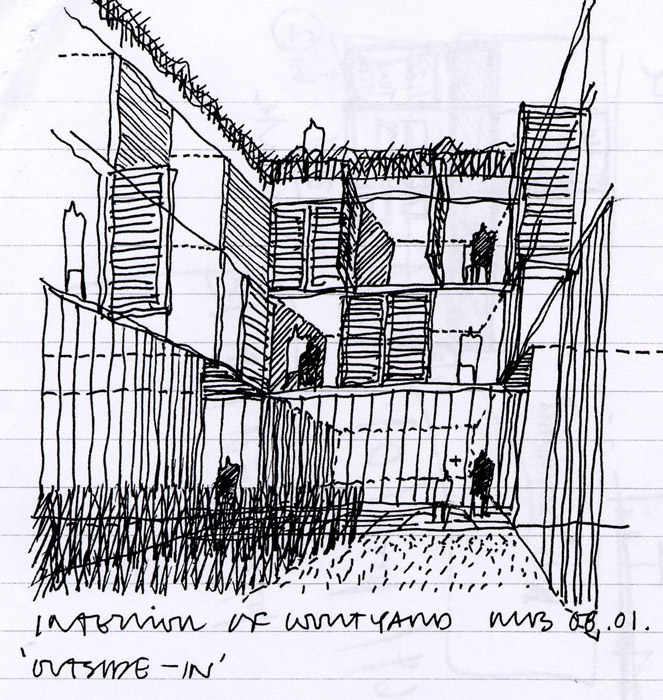 INTERIOR OF COURTYARD 08.01.
'OUTSIDE-IN'